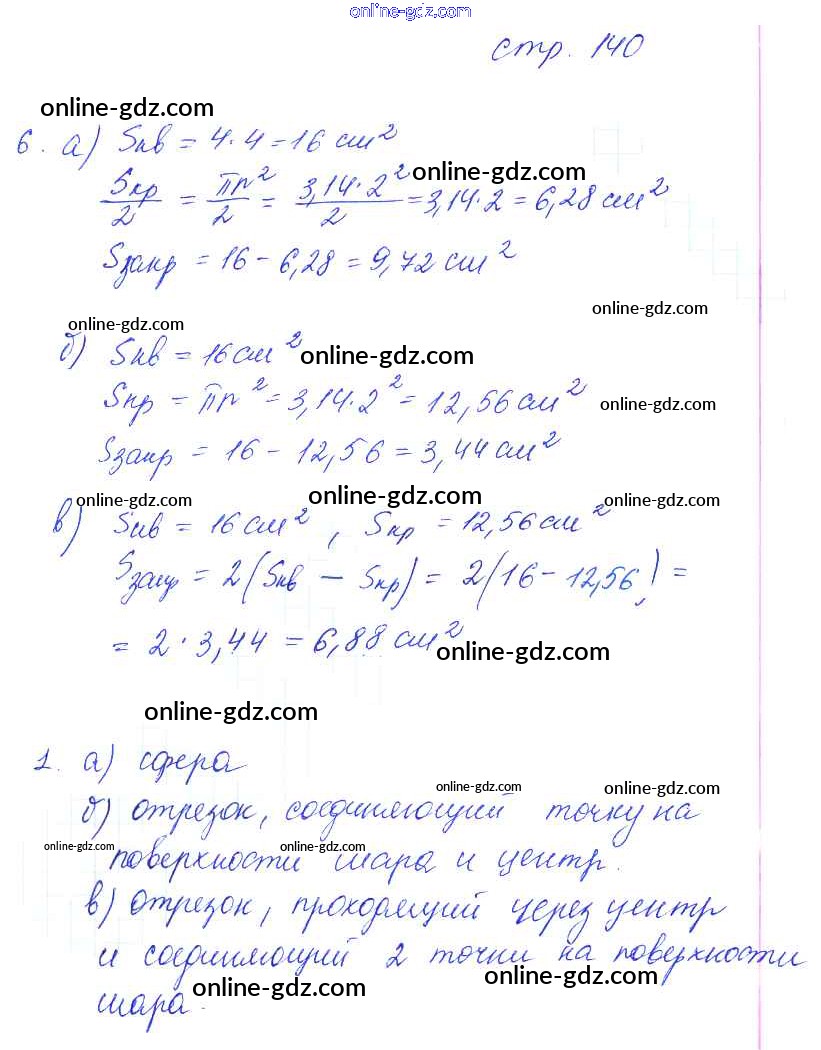 online-gdz.com
стр. 140
online-gdz.com
6. а) Sкв = 4·4 = 16 см²
online-gdz.com
Sкр/2 = πr²/2 = 3,14·2²/2 = 3,14·2 = 6,28 см²
Sзакр = 16 - 6,28 = 9,72 см²
online-gdz.com
online-gdz.com
б) Sкв = 16 см²
online-gdz.com
Sкр = πr² = 3,14·2² = 12,56 см²
online-gdz.com
Sзакр = 16 - 12,56 = 3,44 см²
online-gdz.com
online-gdz.com
online-gdz.com
в) Sкв = 16 см², Sкр = 12,56 см²
Sзакр = 2(Sкв - Sкр) = 2(16 - 12,56) =
= 2·3,44 = 6,88 см²
online-gdz.com
online-gdz.com
1. а) сфера
online-gdz.com
online-gdz.com
б) отрезок, соединяющий точку на
online-gdz.com
online-gdz.com
поверхности шара и центр.
в) отрезок, проходящий через центр
и соединяющий 2 точки на поверхности
online-gdz.com
online-gdz.com
шара.